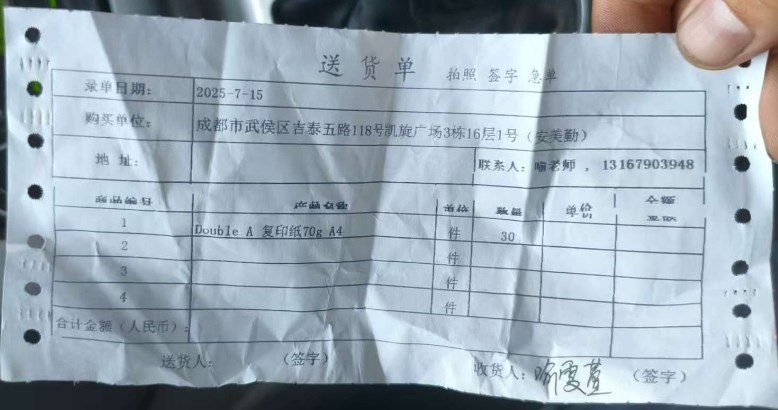 送货单 拍照 签字 急单
录单日期: 2025-7-15
购买单位: 成都市武侯区吉泰五路118号凯旋广场3栋16层1号（安美勤）
地 址: 联系人: 喻老师 , 13167903948
商品编号 产品名称 单位 数量 单价 金额
1 Double A 复印纸70g A4 件 30
2 件
3 件
4 件
合计金额（人民币）:
送货人: （签字） 收货人: 喻雯萱 （签字）